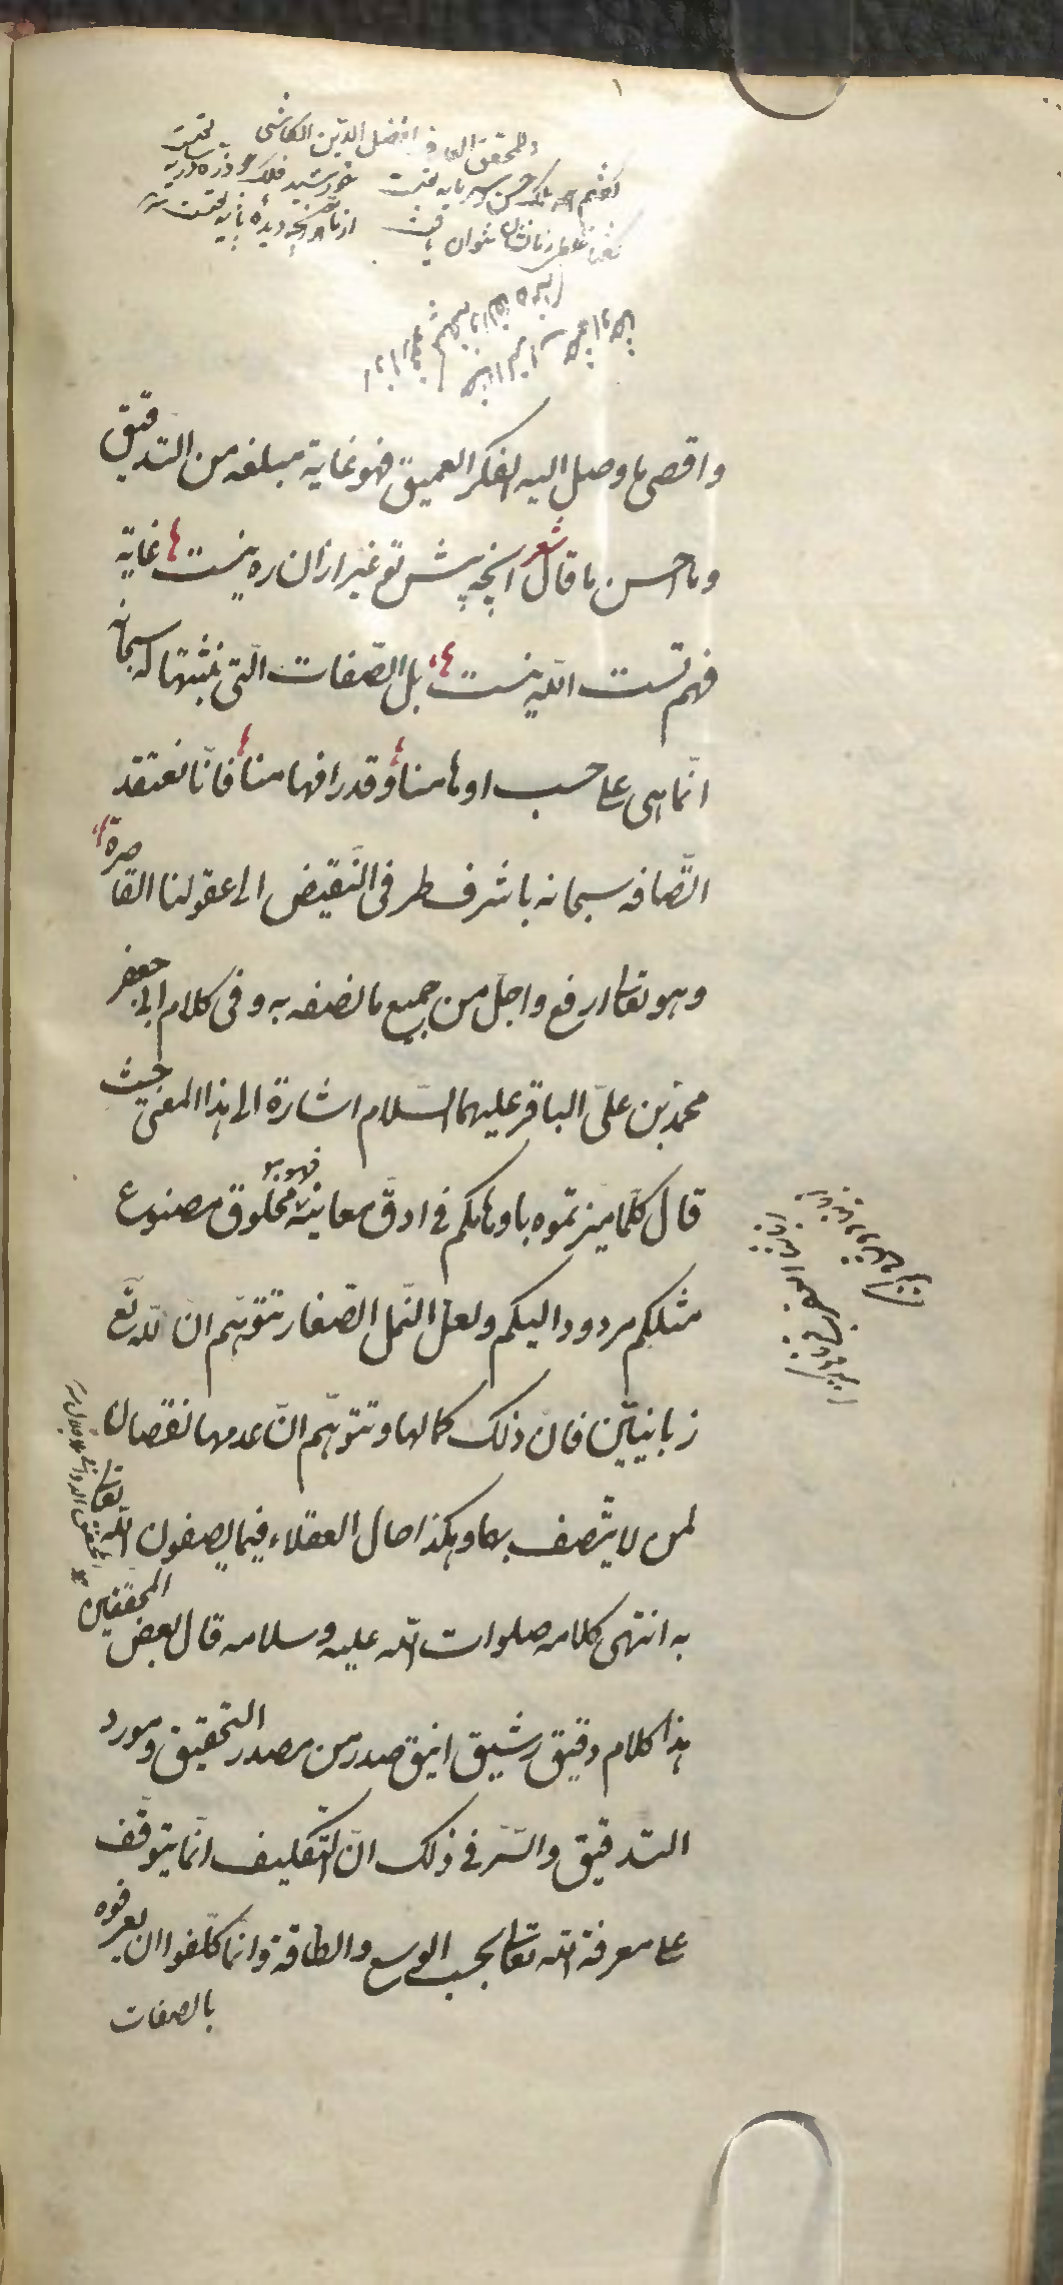 وللمحقق افضل الدین الکاشی
گفتم همه ملک حسن سرمایه تست خورشید فلک چو ذره در سایه تست
گفتا غلطی زما نشان نتوان یافت از ما تو هر آنچه دیده‌ پایه تست
واقصى ما وصل اليه الفكر العميق فهو غاية مبلغه من التدقيق
وما احسن ما قال شعر آنچه پیش تو غیر ازان ره نیست غایة
فهم تست الله نیست بل الصّفات الّتى نثبتها له سبحانه
انّما هى على حسب اوهامنا وقدر افهامنا فانّا نعتقد
اتّصافه سبحانه باشرف طرفى النّقيض الى عقولنا القاصرة
وهو تعالى ارفع واجلّ من جميع ما نصفه به وفى كلام ابى جعفر
محمّد بن علىّ الباقر عليهما السّلام اشارة الى هذا المعنى حيث
قال كلّما ميّزتموه باوهامكم فى ادقّ معانيه فهو مخلوق مصنوع
مثلكم مردود اليكم ولعلّ النّمل الصّغار تتوهّم انّ لله تع
زبانيتين فانّ ذلك كمالها وتتوهّم انّ عدمها نقصان
لمن لا يتّصف بهما وهكذا حال العقلاء فيما يصفون الله تعالى
به انتهى كلامه صلوات الله عليه وسلامه قال بعض المحققين
هذا كلام دقيق رشيق انيق صدر من مصدر التحقيق ومورد
التدقيق والسّرّ فى ذلك انّ التّكليف انّما يتوقّف
على معرفة الله تعالى بحسب الوسع والطاقة وانّما كلّفوا ان يعرفوه
بالصفات